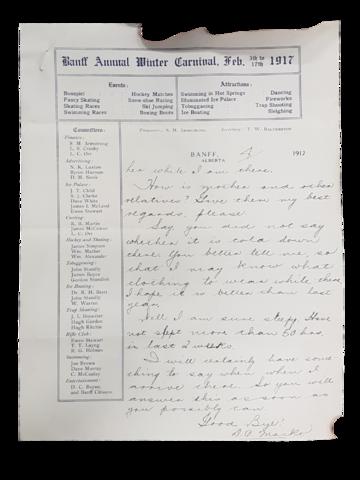 Banff Annual Winter Carnival, Feb. 5th to 17th 1917
Events:
Bonspiel
Fancy Skating
Skating Races
Swimming Races
Hockey Matches
Snow-shoe Racing
Ski Jumping
Boxing Bouts
Attractions:
Swimming in Hot Springs
Illuminated Ice Palace
Tobogganing
Ice Boating
Dancing
Fireworks
Trap Shooting
Sleighing
President: S. M. Armstrong. Secretary: T. W. Balderston
Committees:
Finance:
S. M. Armstrong
L. S. Crosby
L. C. Orr
Advertising:
N. K. Luxton
Byron Harmon
D. M. Soole
Ice Palace:
J. T. Child
S. J. Clarke
Dave White
James I. McLeod
Ewen Stewart
Curling:
R. B. Martin
James McConnor
L. C. Orr
Hockey and Skating:
James Simpson
Wm. Mather
Wm. Alexander
Tobogganing:
John Standly
James Boyce
Gordon Standish
Ice Boating:
Dr. R. H. Brett
John Standly
W. Warren
Trap Shooting:
J. L. Brewster
Hugh Gordon
Hugh Ritchie
Rifle Club:
Ewen Stewart
T. T. Layng
R. G. Holmes
Swimming:
Joe Brown
Dave Murray
C. McCauley
Entertainment:
D. C. Bayne,
and Banff Citizens
BANFF,
ALBERTA
1917
her while I am there.
How is mother and other
relatives? Give them my best
regards, please
Say you did not say
whether it is cold down
there. You better tell me, so
that I may know what
clothing to wear while there
I hope it is better than last
year.
Well I am sure sleepy. Have
not slept more than 50 hrs.
in last 2 weeks.
I will certainly have some
thing to say when when I
arrive there. So you will
answer this as soon as
you possibly can
Good Bye!